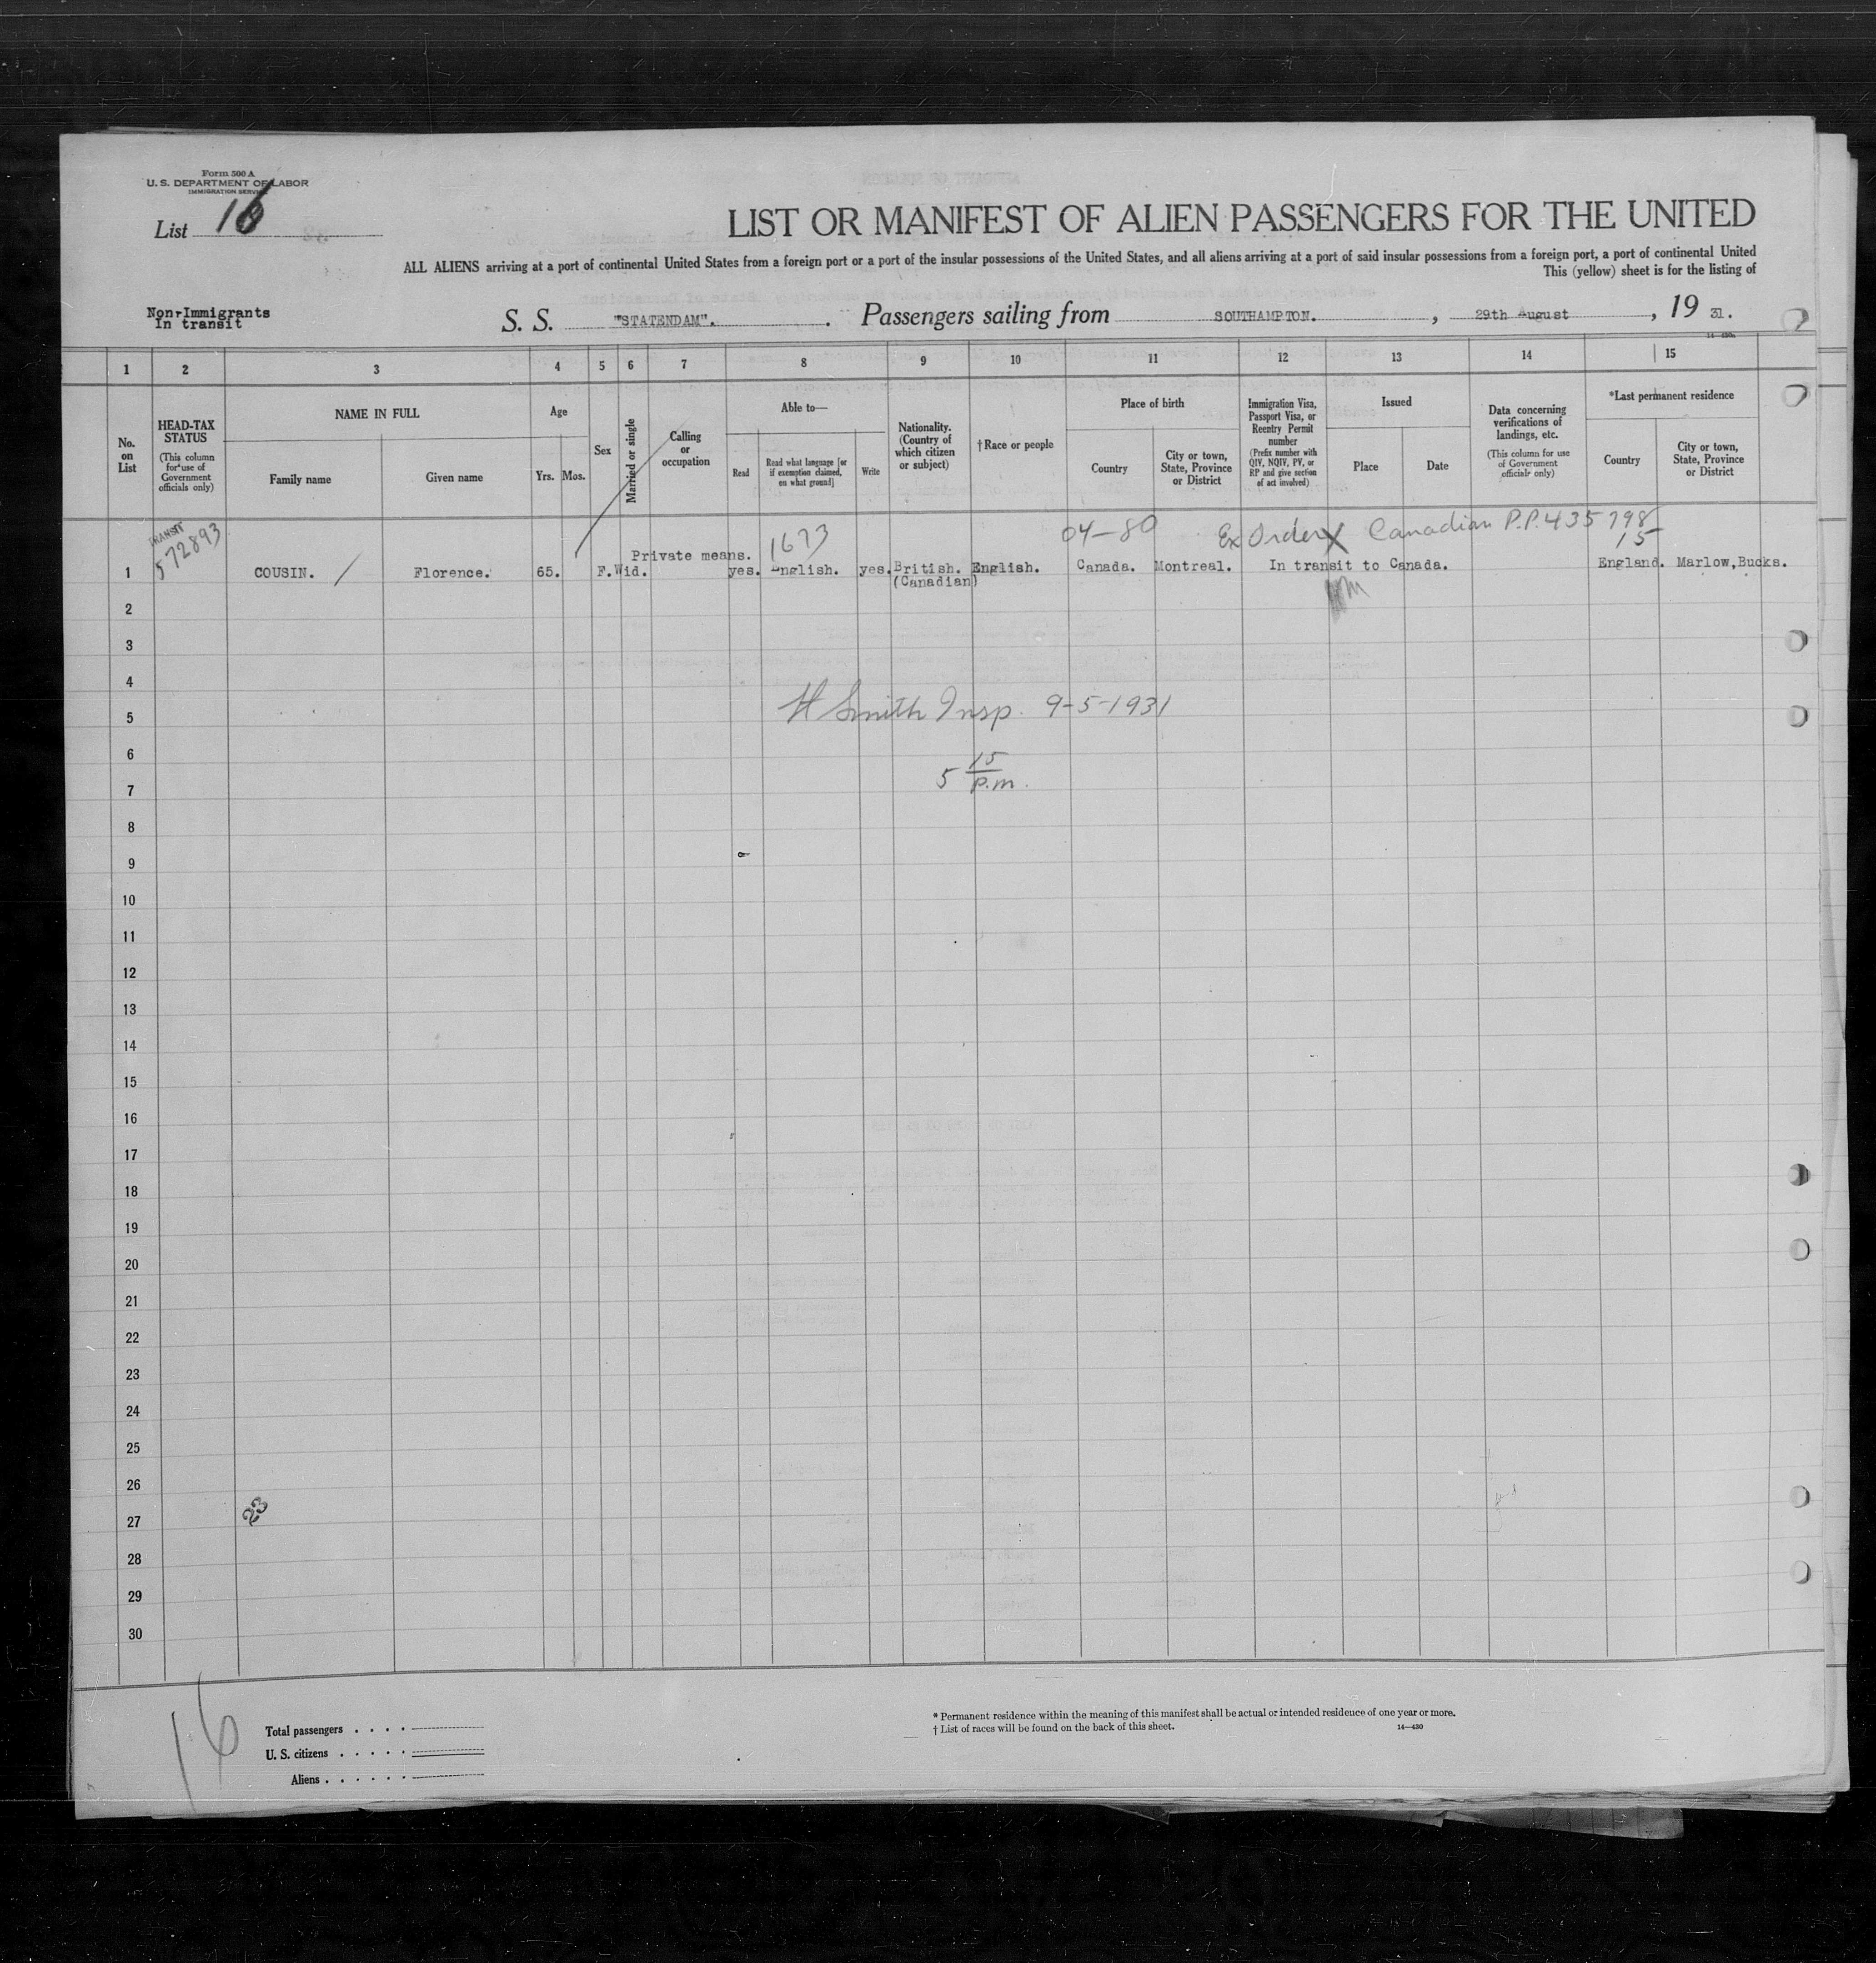 Form 500 A
U. S. DEPARTMENT OF LABOR
IMMIGRATION SERVICE
List 16
LIST OR MANIFEST OF ALIEN PASSENGERS FOR THE UNITED
ALL ALIENS arriving at a port of continental United States from a foreign port or a port of the insular possessions of the United States, and all aliens arriving at a port of said insular possessions from a foreign port, a port of continental United
This (yellow) sheet is for the listing of
Non-Immigrants
In transit
S. S. "STATENDAM". Passengers sailing from SOUTHAMPTON. , 29th August , 19 31.
1 2 3 4 5 6 7 8 9 10 11 12 13 14 15
No. on List
HEAD-TAX STATUS
(This column for use of Government officials only)
NAME IN FULL
Family name
Given name
Age
Yrs. Mos.
Sex
Married or single
Calling or occupation
Able to—
Read
Read what language [or if exemption claimed, on what ground]
Write
Nationality. (Country of which citizen or subject)
†Race or people
Place of birth
Country
City or town, State, Province or District
Immigration Visa, Passport Visa, or Reentry Permit number
(Prefix number with QIV, NQIV, PV, or RP and give section of act involved)
Issued
Place
Date
Data concerning verifications of landings, etc.
(This column for use of Government officials only)
*Last permanent residence
Country
City or town, State, Province or District
TRANSIT
572893
1673
04-80
Ex Order X Canadian P.P. 435798
15
Private means.
1 COUSIN. / Florence. 65. F. Wid. yes. English. yes. British. English. Canada. Montreal. In transit to Canada. England. Marlow, Bucks.
(Canadian)
2
3
4
H Smith Insp. 9-5-1931
5
6
5 15/p.m.
7
8
9
10
11
12
13
14
15
16
17
18
19
20
21
22
23
24
25
26
23
27
28
29
30
16
Total passengers . . . .
U. S. citizens . . . . .
Aliens . . . . . .
* Permanent residence within the meaning of this manifest shall be actual or intended residence of one year or more.
† List of races will be found on the back of this sheet.
14—430